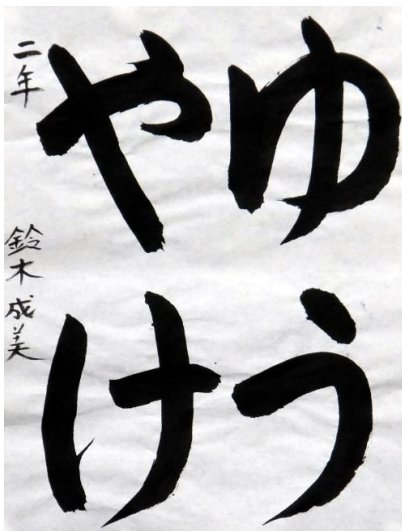 ゆう
やけ
二年
鈴木成美